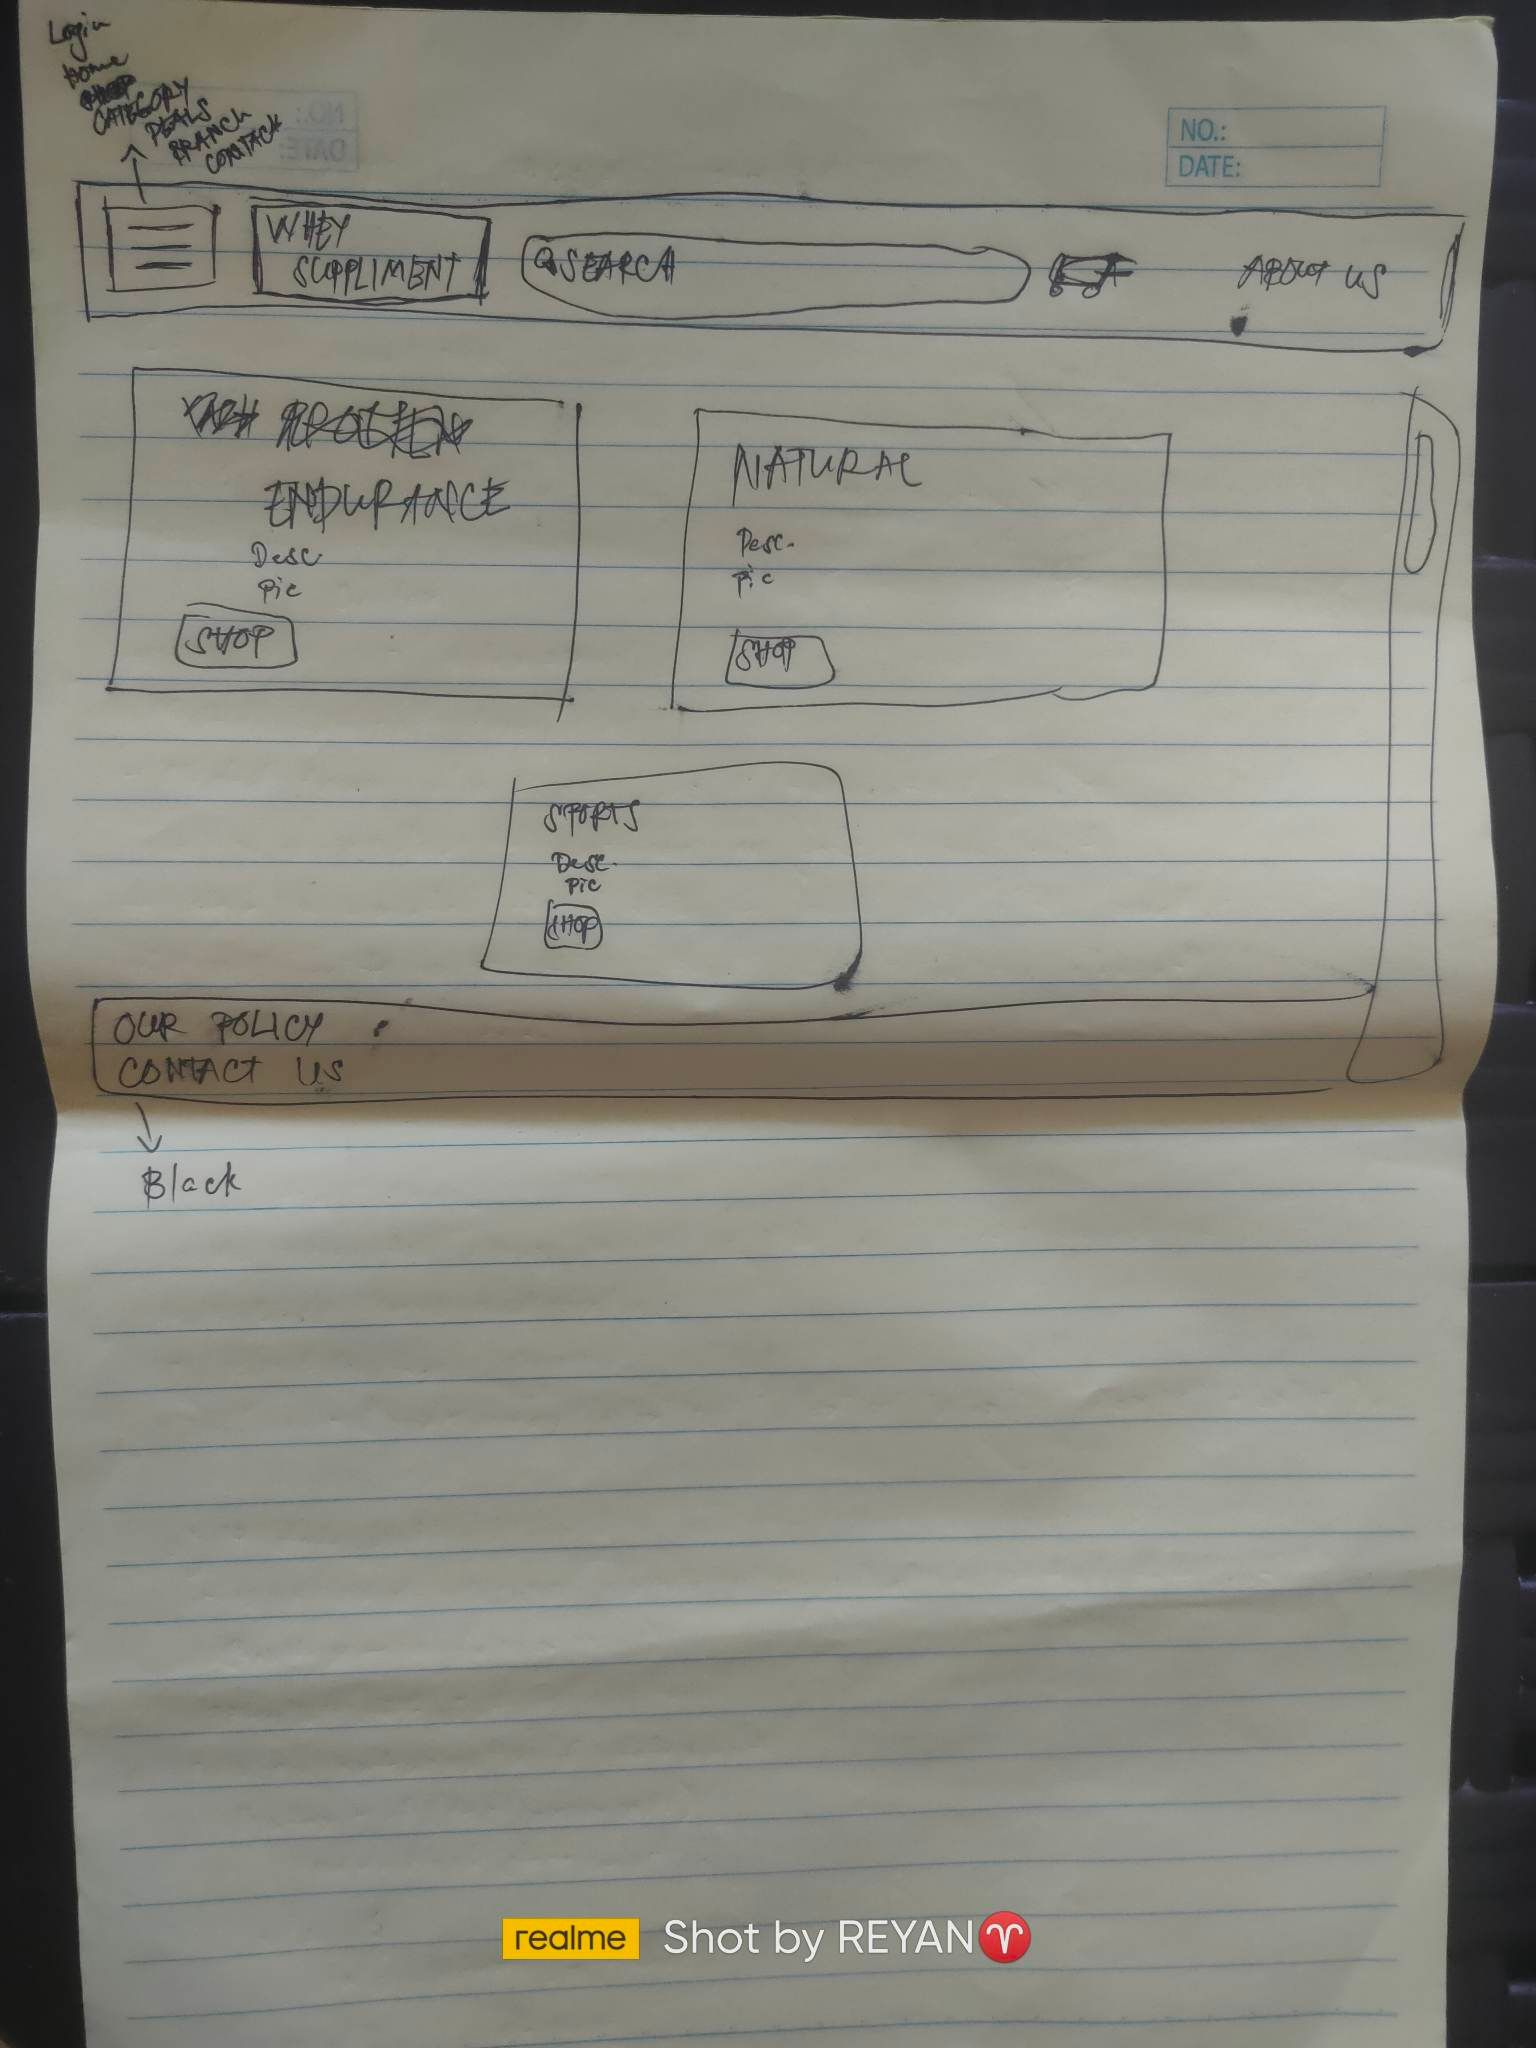 Login
Home
CATEGORY
DEALS
BRANCH
CONTACK
NO.:
DATE:
NO.:
DATE:
WHEY
SUPPLIMENT
SEARCH
ABOUT US
ENDURANCE
Desc.
Pic
SHOP
NATURAL
Desc.
Pic
SHOP
SPORTS
Desc.
Pic
SHOP
OUR POLICY
CONTACT US
Black
realme Shot by REYAN